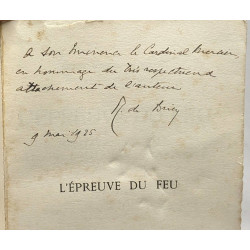 A Son Eminence le Cardinal Mercier,
en hommage du très respectueux
attachement de l'auteur
R. de Briey
9 mai 1925
L'ÉPREUVE DU FEU